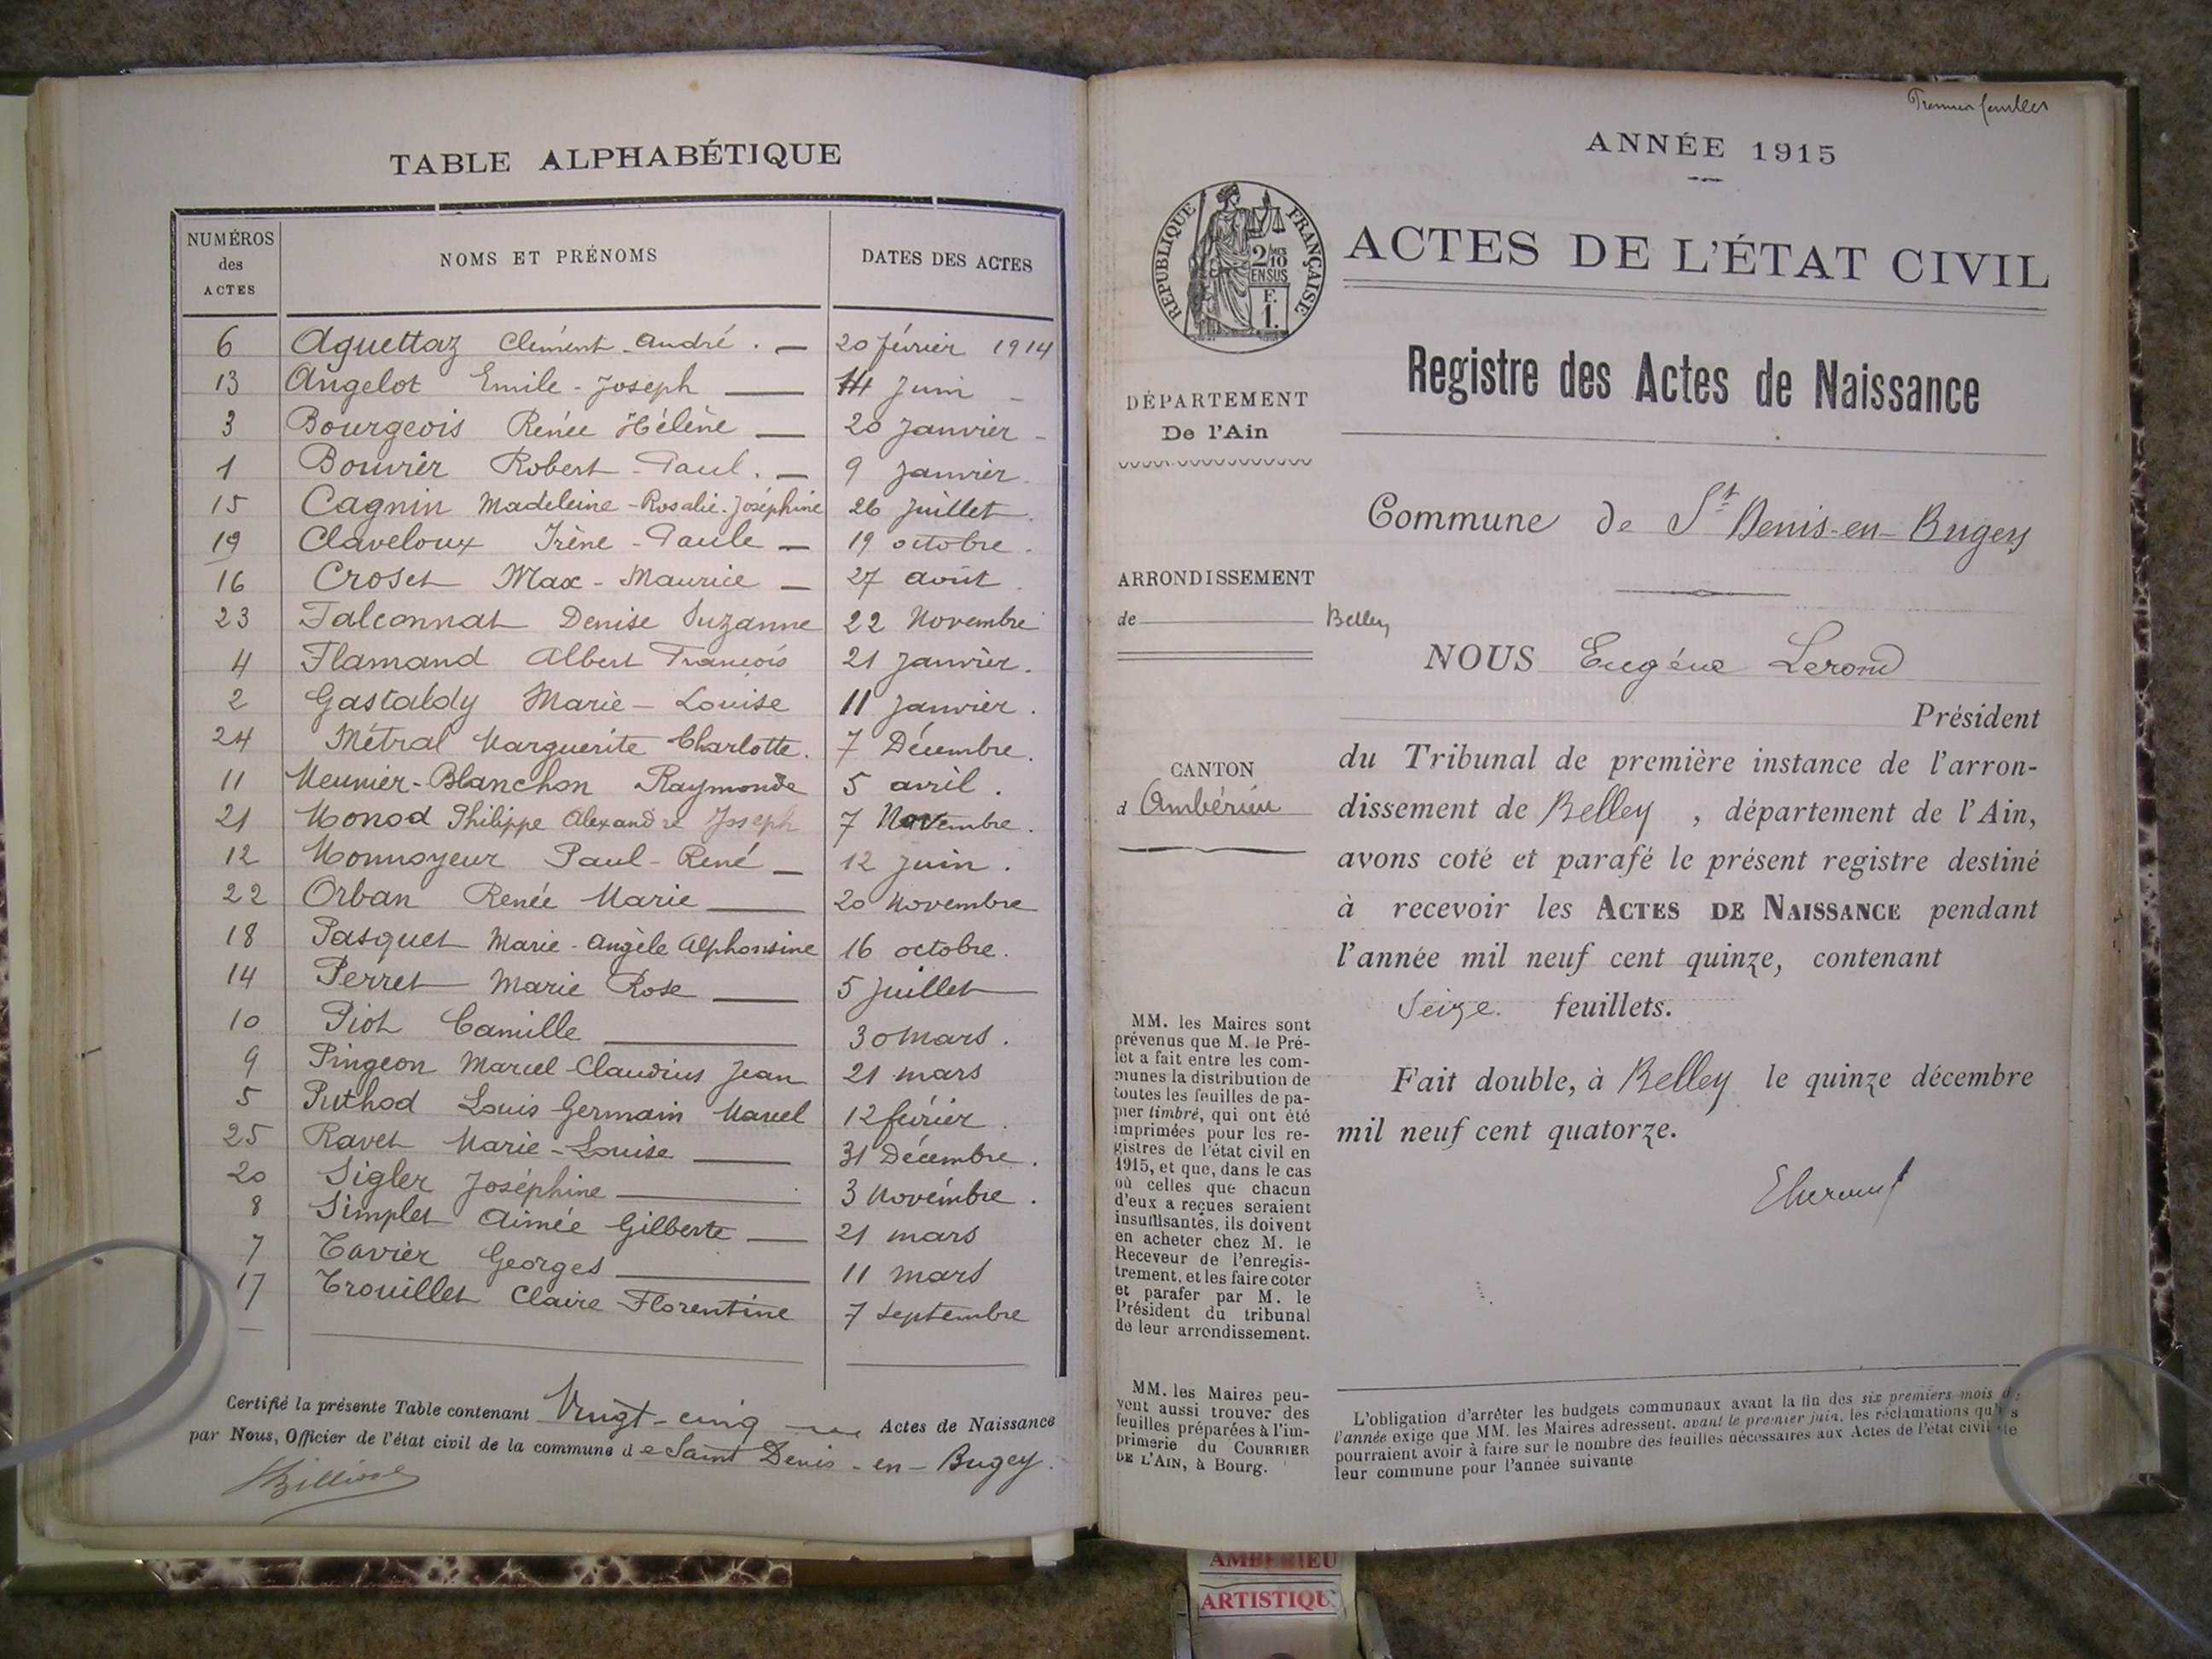 TABLE ALPHABÉTIQUE
NUMÉROS des ACTES NOMS ET PRÉNOMS DATES DES ACTES
6 Aguettaz Clément André . — 20 février 1914
13 Angelot Emile - Joseph — 14 Juin -
3 Bourgeois Renée Hélène — 20 Janvier -
1 Bouvier Robert - Paul . — 9 Janvier .
15 Cagnin Madeleine - Rosalie - Joséphine 26 Juillet .
19 Claveloux Irène - Paule — 19 octobre .
16 Croset Max - Maurice — 27 août .
23 Falconnat Denise Suzanne 22 Novembre
4 Flamand Albert François 21 Janvier .
2 Gastaldy Marie - Louise 11 Janvier .
24 Métral Marguerite Charlotte . 7 Décembre .
11 Meunier-Blanchon Raymonde 5 avril .
21 Monod Philippe Alexandre Joseph 7 Novembre .
12 Monnoyeur Paul - René — 12 Juin .
22 Orban Renée Marie — 20 Novembre
18 Pasquet Marie - Angèle Alphonsine 16 octobre .
14 Perret Marie Rose — 5 Juillet
10 Piot Camille — 30 mars .
9 Pingeon Marcel - Claudius Jean 21 mars
5 Puthod Louis Germain Marcel 12 février .
25 Ravet Marie - Louise — 31 Décembre .
20 Sigler Joséphine — 3 Novembre .
8 Simplet Aimée Gilberte — 21 mars
7 Tavier Georges — 11 mars
17 Trouillet Claire - Florentine 7 septembre
Certifié la présente Table contenant Vingt-cinq Actes de Naissance
par Nous, Officier de l'état civil de la commune de Saint Denis - en - Bugey .
Premier feuillet
ANNÉE 1915
RÉPUBLIQUE FRANÇAISE
2/10
EN SUS
F.
1.
ACTES DE L'ÉTAT CIVIL
Registre des Actes de Naissance
DÉPARTEMENT
De l'Ain
Commune de St Denis-en-Bugey
ARRONDISSEMENT
de Belley
NOUS Eugène Lerond
Président
CANTON
d'Ambérieu
du Tribunal de première instance de l'arron-
dissement de Belley , département de l'Ain,
avons coté et parafé le présent registre destiné
à recevoir les ACTES DE NAISSANCE pendant
l'année mil neuf cent quinze, contenant
Seize feuillets.
Fait double, à Belley le quinze décembre
mil neuf cent quatorze.
MM. les Maires sont
prévenus que M. le Pré-
fet a fait entre les com-
munes la distribution de
toutes les feuilles de pa-
pier timbré, qui ont été
imprimées pour les re-
gistres de l'état civil en
1915, et que, dans le cas
où celles que chacun
d'eux a reçues seraient
insuffisantes, ils doivent
en acheter chez M. le
Receveur de l'enregis-
trement, et les faire coter
et parafer par M. le
Président du tribunal
de leur arrondissement.
MM. les Maires peu-
vent aussi trouver des
feuilles préparées à l'im-
primerie du COURRIER
DE L'AIN, à Bourg.
L'obligation d'arrêter les budgets communaux avant la fin des six premiers mois de
l'année exige que MM. les Maires adressent, avant le premier juin, les réclamations qu'ils
pourraient avoir à faire sur le nombre des feuilles nécessaires aux Actes de l'état civil de
leur commune pour l'année suivante
AMBERIEU
ARTISTIQU